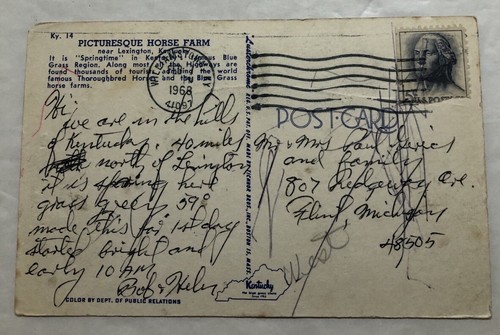 Ky. 14
PICTURESQUE HORSE FARM
near Lexington, Kentucky
It is "Springtime" in Kentucky's famous Blue
Grass Region. Along most all the Highways are
found thousands of tourists admiring the world
famous Thoroughbred Horses and the Blue Grass
horse farms.
Hi,
we are in the hills
of Kentucky. 40 miles
north of Lexington
it is spring here
grass green 59°
made this for 1st day
started bright and
early 10 AM
Bob & Helen
COLOR BY DEPT. OF PUBLIC RELATIONS
Kentucky
1968
5¢
POST CARD
Mr & Mrs Paul
and family
807 Ridgeway Ave.
Flint, Michigan
48505
West